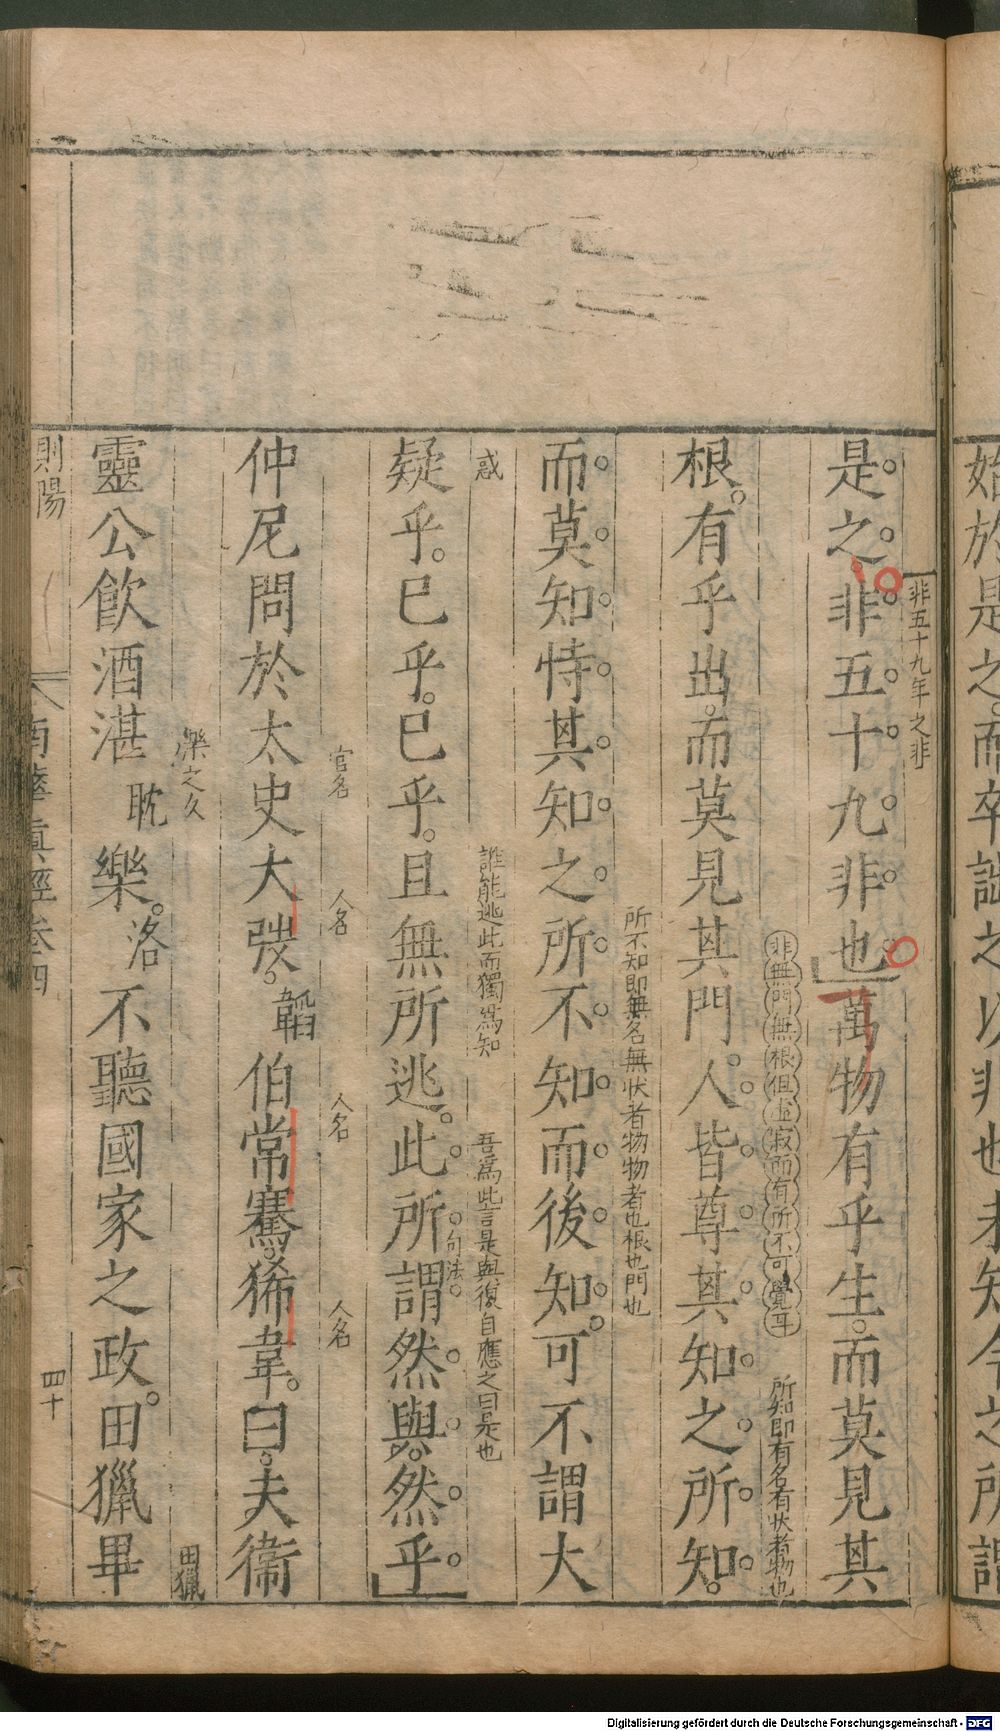 始於是之而卒詘之以非也未知今之所謂
非五十九年之非
是之非五十九非也萬物有乎生而莫見其
非無門無根但虛寂而有所不可覺耳
所知即有名有狀者物也
根有乎出而莫見其門人皆尊其知之所知
所不知即無名無狀者物物者也根也門也
而莫知恃其知之所不知而後知可不謂大
惑
誰能逃此而獨為知
吾為此言是與復自應之曰是也
疑乎已乎已乎且無所逃此所謂然與然乎
句法
官名
人名
人名
人名
仲尼問於太史大弢韜伯常騫狶韋曰夫衞
樂之久
田獵
靈公飲酒湛耽樂洛不聽國家之政田獵畢
則陽
南華真經卷四
四十
Digitalisierung gefördert durch die Deutsche Forschungsgemeinschaft - DFG